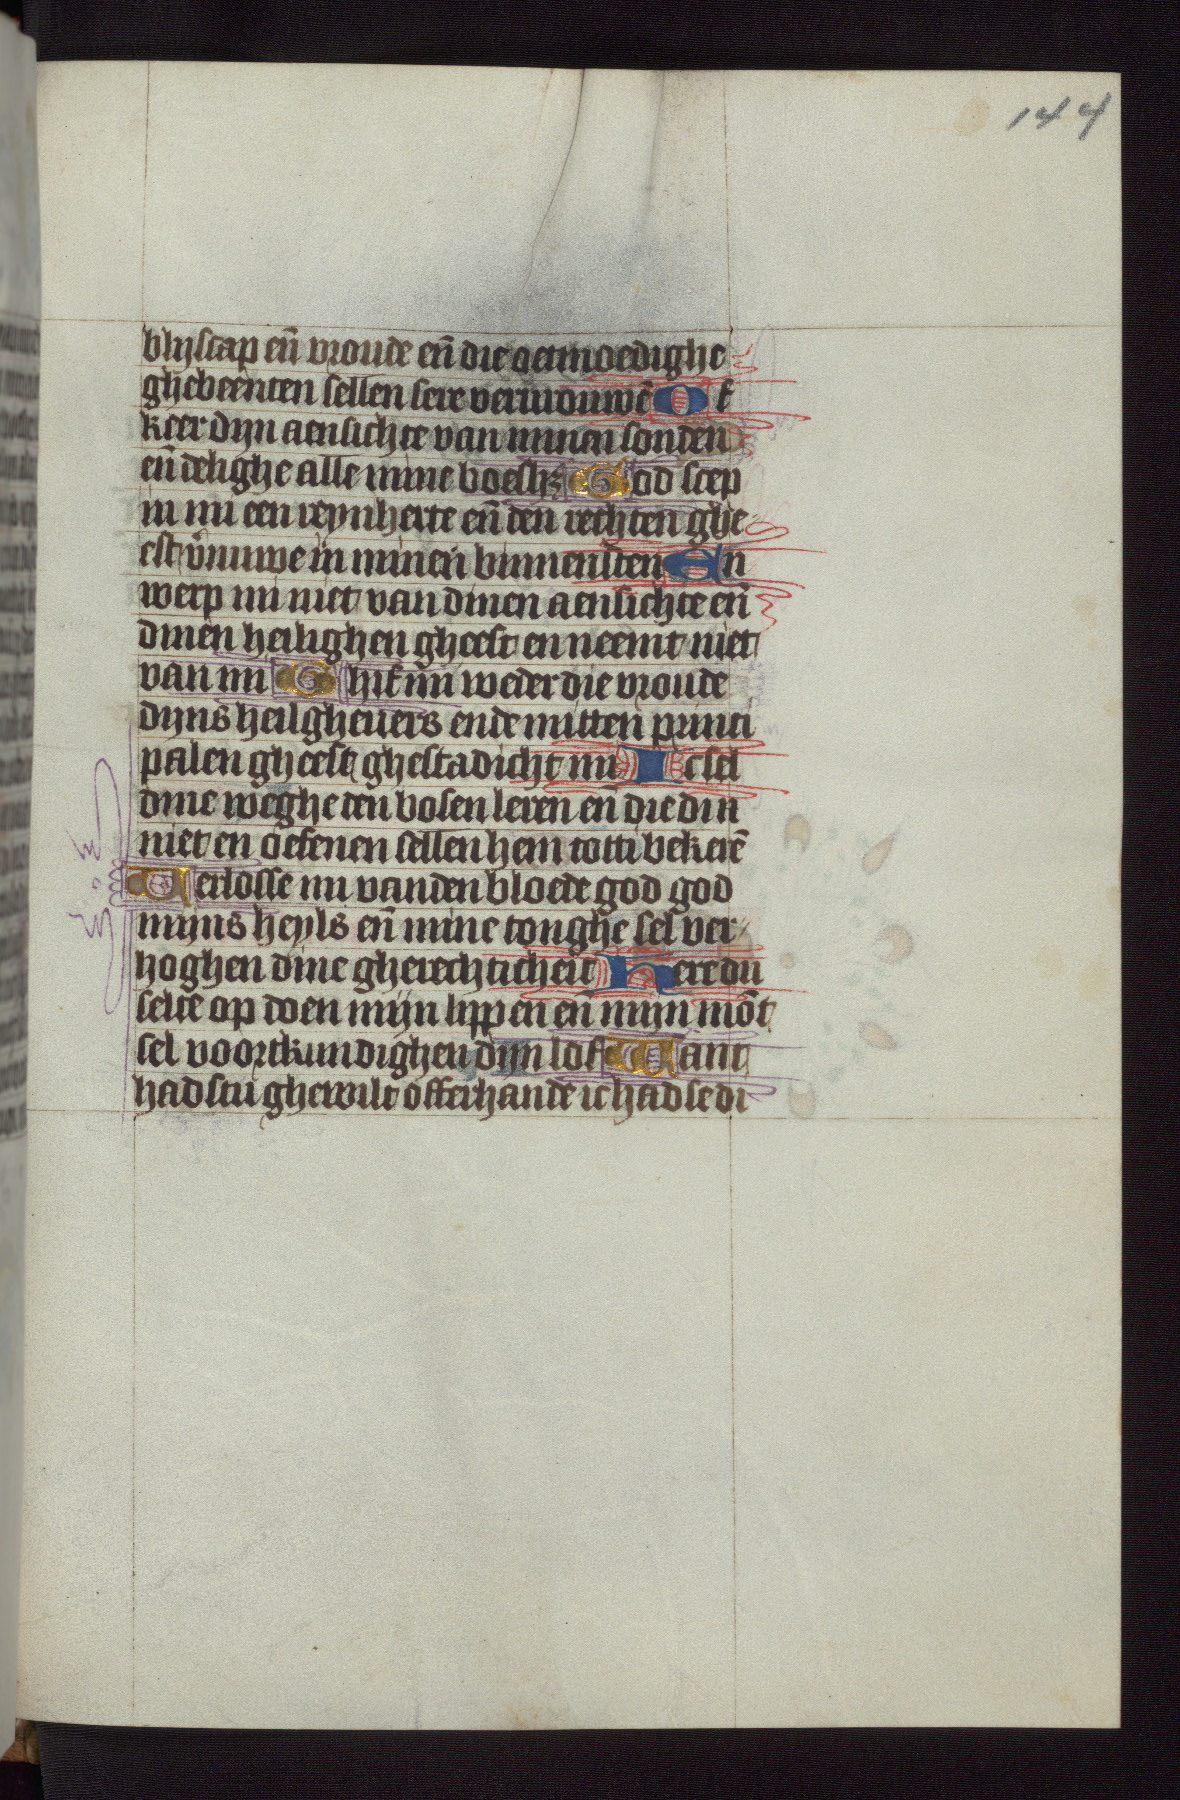 144
blijscap eñ vroude eñ die oetmoedighe
ghebeenten sellen sere vervrouwē Of
keer dijn aensichte van minen sonden
eñ delighe alle mine boesh; God scep
in mi een reyn herte eñ den rechten ghe
est v̄nuwe in minen binnensten En
werp mi niet van dinen aensichte eñ
dinen heilighen gheest en neemt niet
van mi Ghif mi weder die vroude
dijns heilgheuers ende mitten princi
palen gheest ghestadicht mi Ic sel
dine weghe den bosen leren eñ die din
niet en oefenen sellen hem tot ti bekerē
Verlosse mi vanden bloede god god
mijns heyls eñ mine tonghe sel ver
hoghen dine gherechticheit Here du
selte op doen mijn lippen eñ mijn mōt
sel voortkundighen dijn lof Want
hadstu ghewilt offerhande ic hadse di